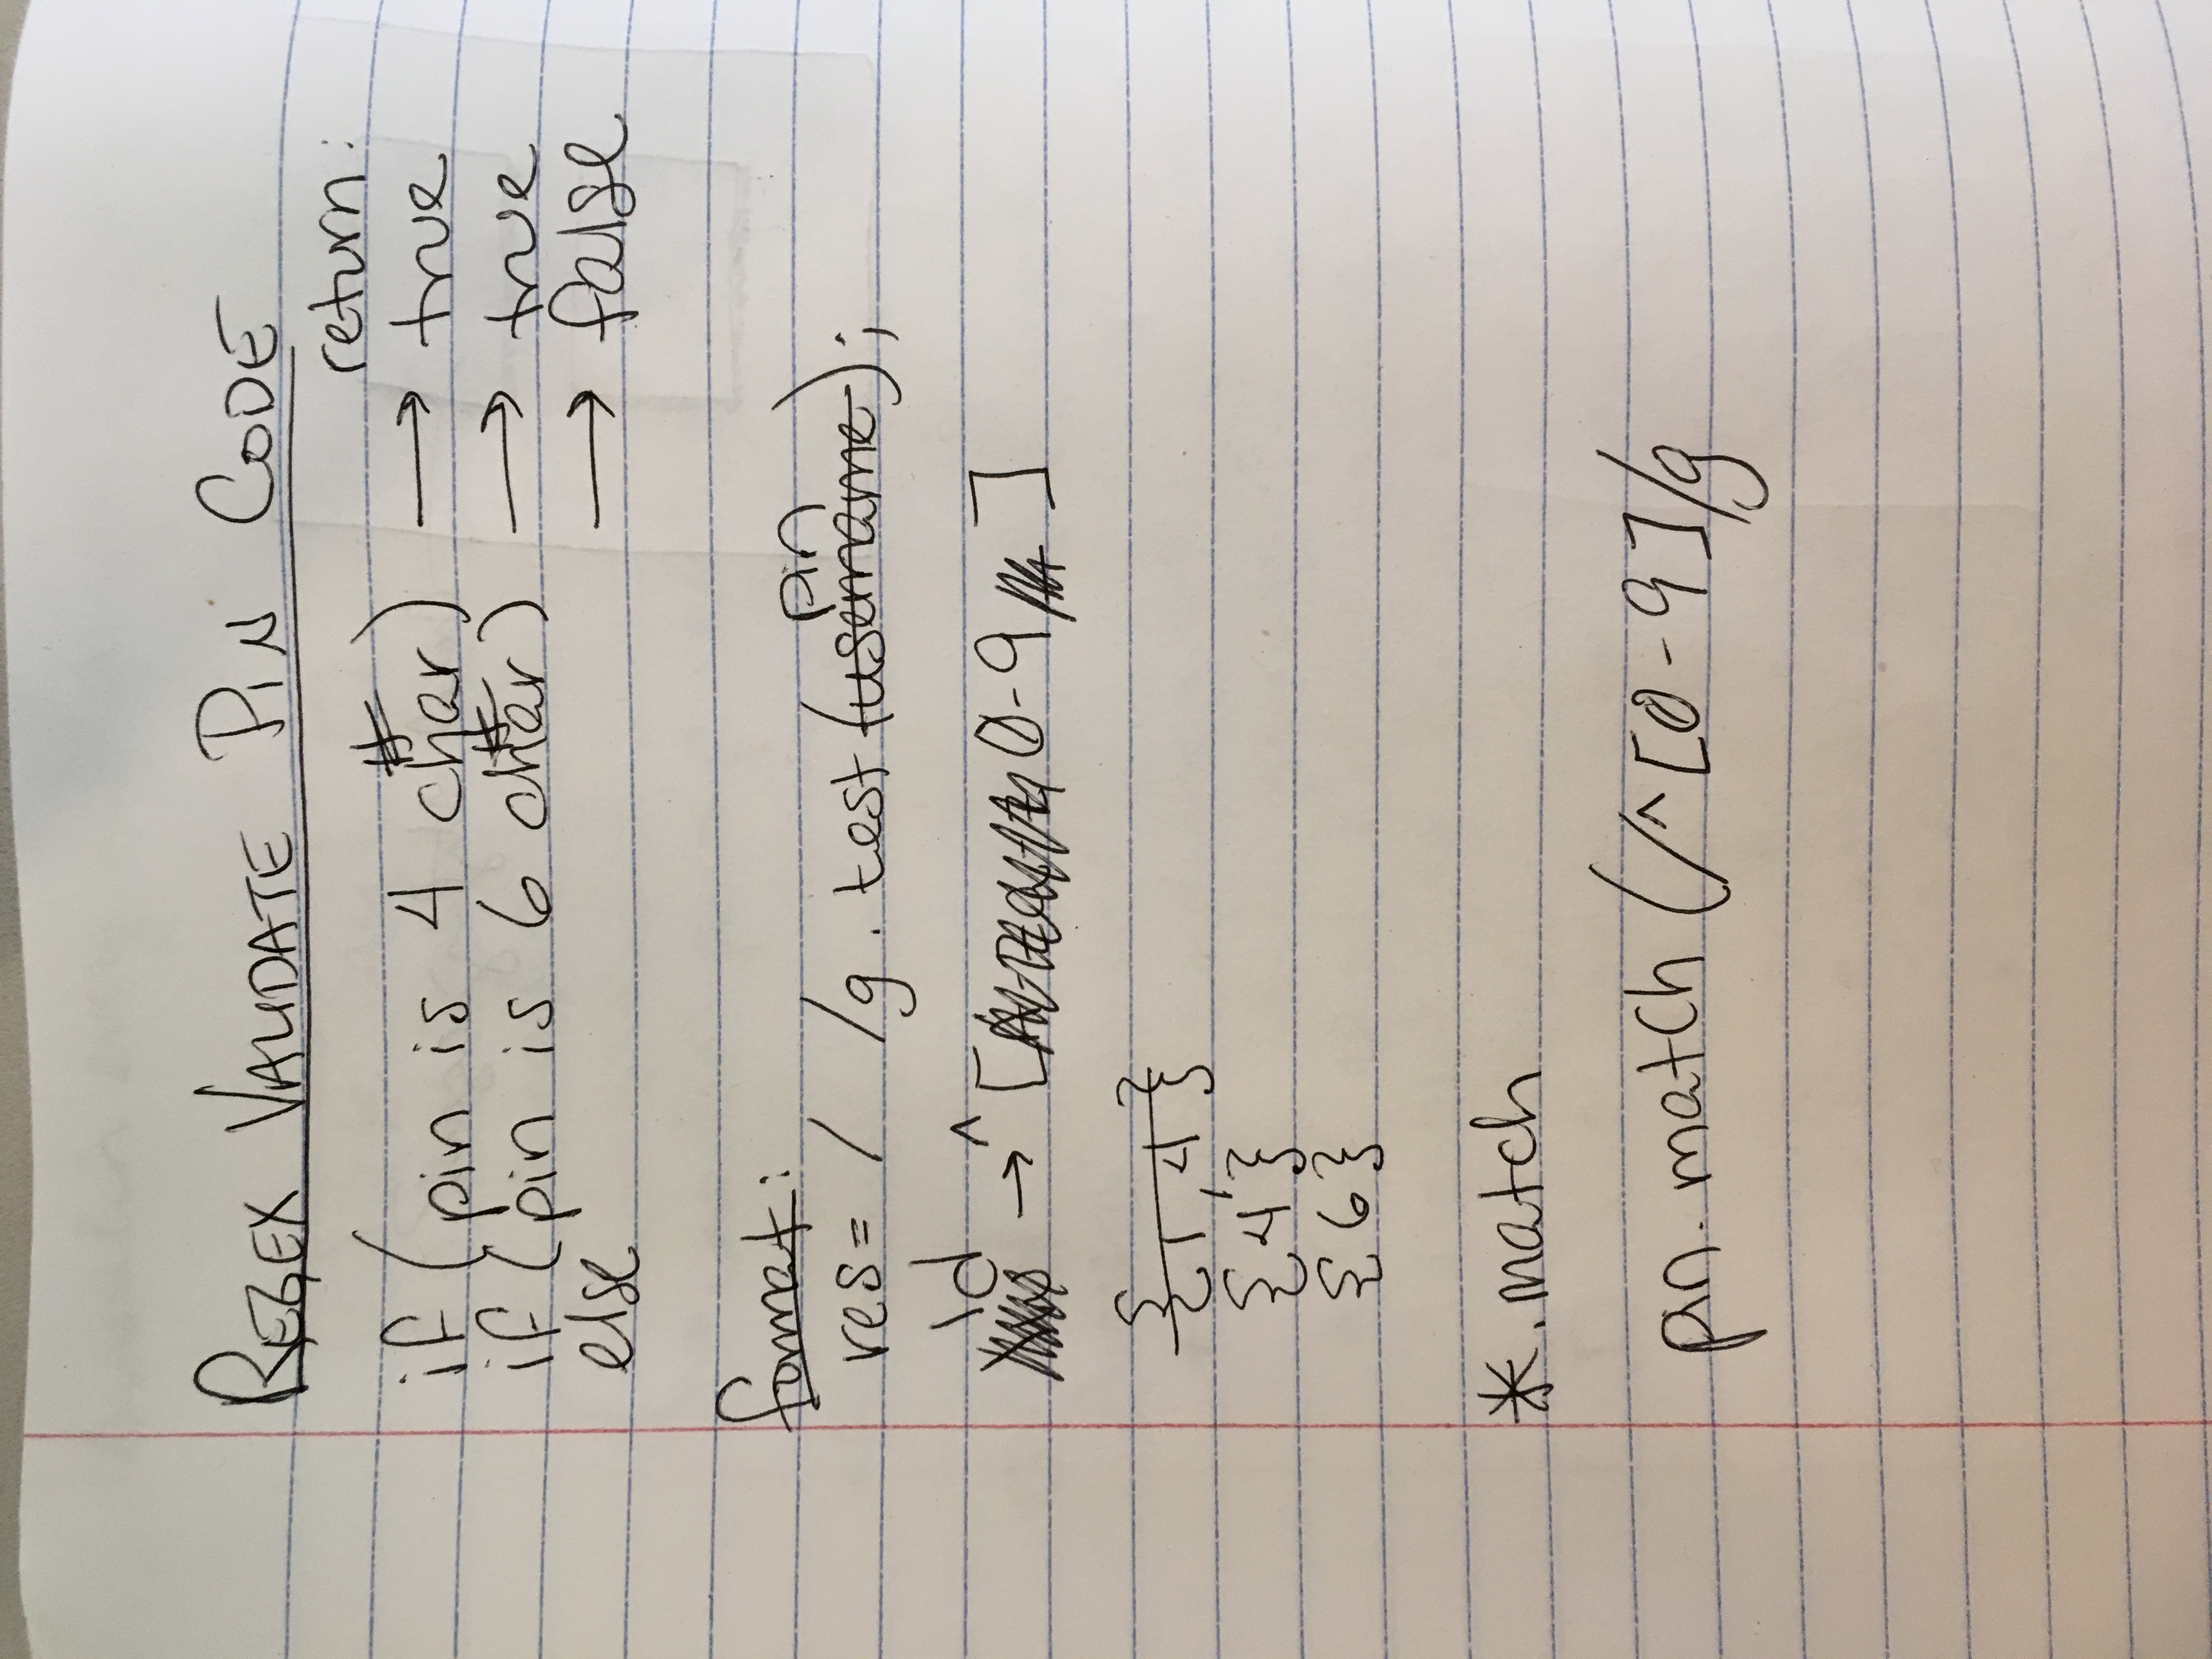 REGEX VALIDATE PIN CODE
return:
if (pin is 4 # char) → true
if (pin is 6 # char) → true
else → false
format:
res = /  /g . test (username pin);
\d → ^ [0-9]
{1,4}
{4}
{6}
* .match
pin. match (/^[0-9]/g